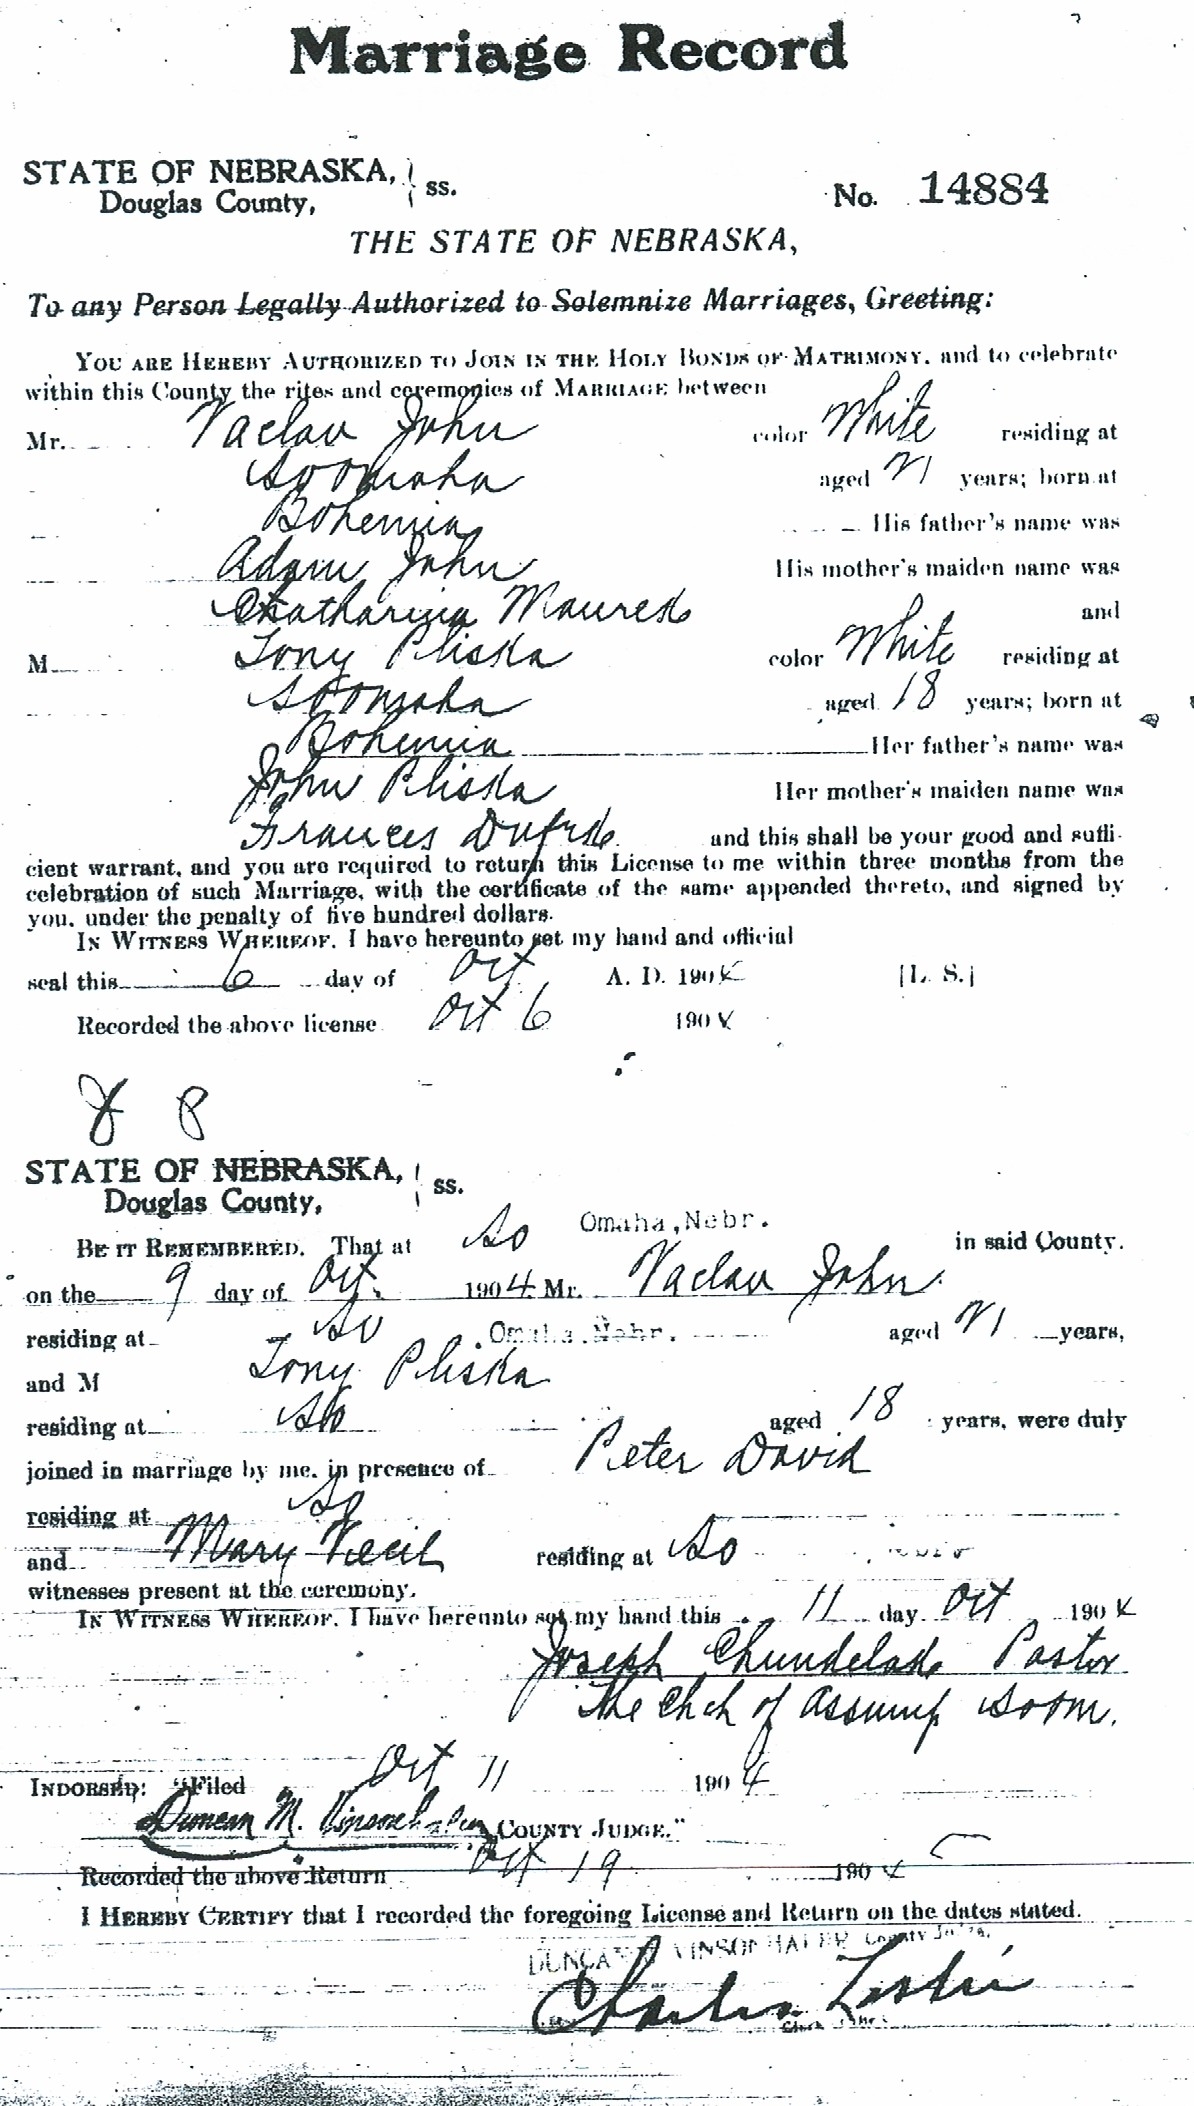 Marriage Record
STATE OF NEBRASKA, } ss.
Douglas County,
No. 14884
THE STATE OF NEBRASKA,
To any Person Legally Authorized to Solemnize Marriages, Greeting:
YOU ARE HEREBY AUTHORIZED TO JOIN IN THE HOLY BONDS OF MATRIMONY, and to celebrate
within this County the rites and ceremonies of MARRIAGE between
Mr. Vaclav John color White residing at
So Omaha aged 21 years; born at
Bohemia His father's name was
Adam John His mother's maiden name was
Katharina Maurek and
M Tony Pliska color White residing at
So Omaha aged 18 years; born at
Bohemia Her father's name was
John Pliska Her mother's maiden name was
Frances and this shall be your good and suffi-
cient warrant, and you are required to return this License to me within three months from the
celebration of such Marriage, with the certificate of the same appended thereto, and signed by
you, under the penalty of five hundred dollars.
IN WITNESS WHEREOF, I have hereunto set my hand and official
seal this 6 day of Oct A. D. 1904 [L. S.]
Recorded the above license Oct 6 1904
8 8
STATE OF NEBRASKA, } ss.
Douglas County,
BE IT REMEMBERED, That at So Omaha, Nebr. in said County,
on the 9 day of Oct. 1904 Mr. Vaclav John
residing at So Omaha, Nebr. aged 21 years,
and M Tony Pliska
residing at So aged 18 years, were duly
joined in marriage by me, in presence of Peter David
residing at So
and Mary residing at So
witnesses present at the ceremony.
IN WITNESS WHEREOF, I have hereunto set my hand this 11 day Oct 1904
Joseph Chundelak Pastor
The Chch of Assump So Om.
INDORSED: "Filed Oct 11 1904
Duncan M. Vinsonhaler COUNTY JUDGE."
Recorded the above Return Oct 19 1904
I HEREBY CERTIFY that I recorded the foregoing License and Return on the dates stated.
DUNCAN M. VINSONHALER County Judge,
Charles Leslie